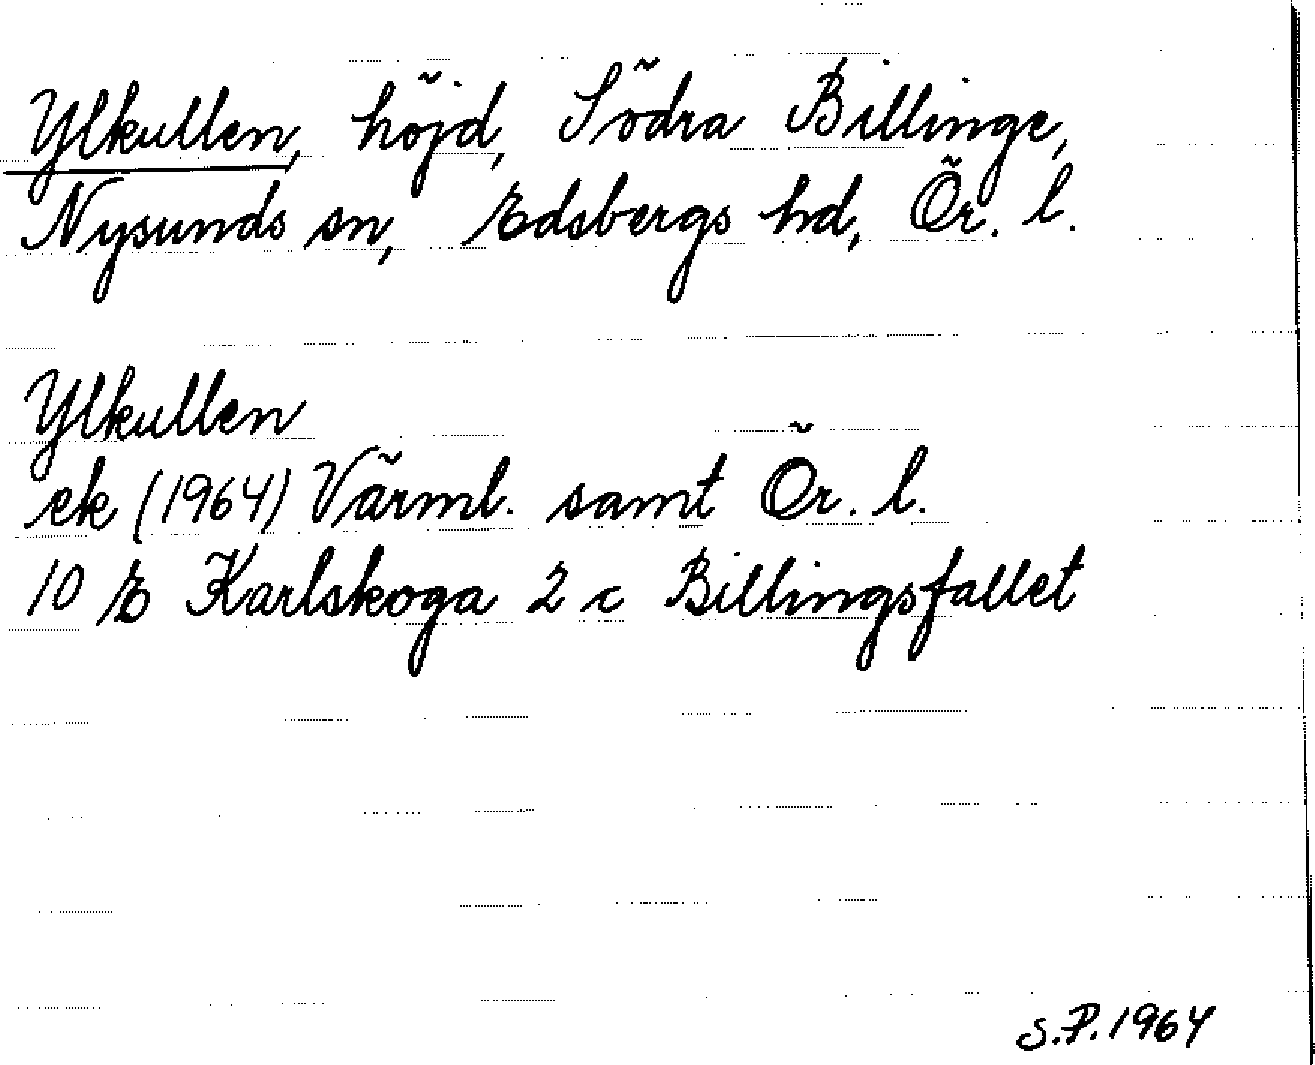 Ylkullen, höjd, Södra Billinge,
Nysunds sn, Edsbergs hd, Ör. l.
Ylkullen
ek (1964) Värml. samt Ör. l.
10 E Karlskoga 2 c Billingsfallet
S.P. 1964